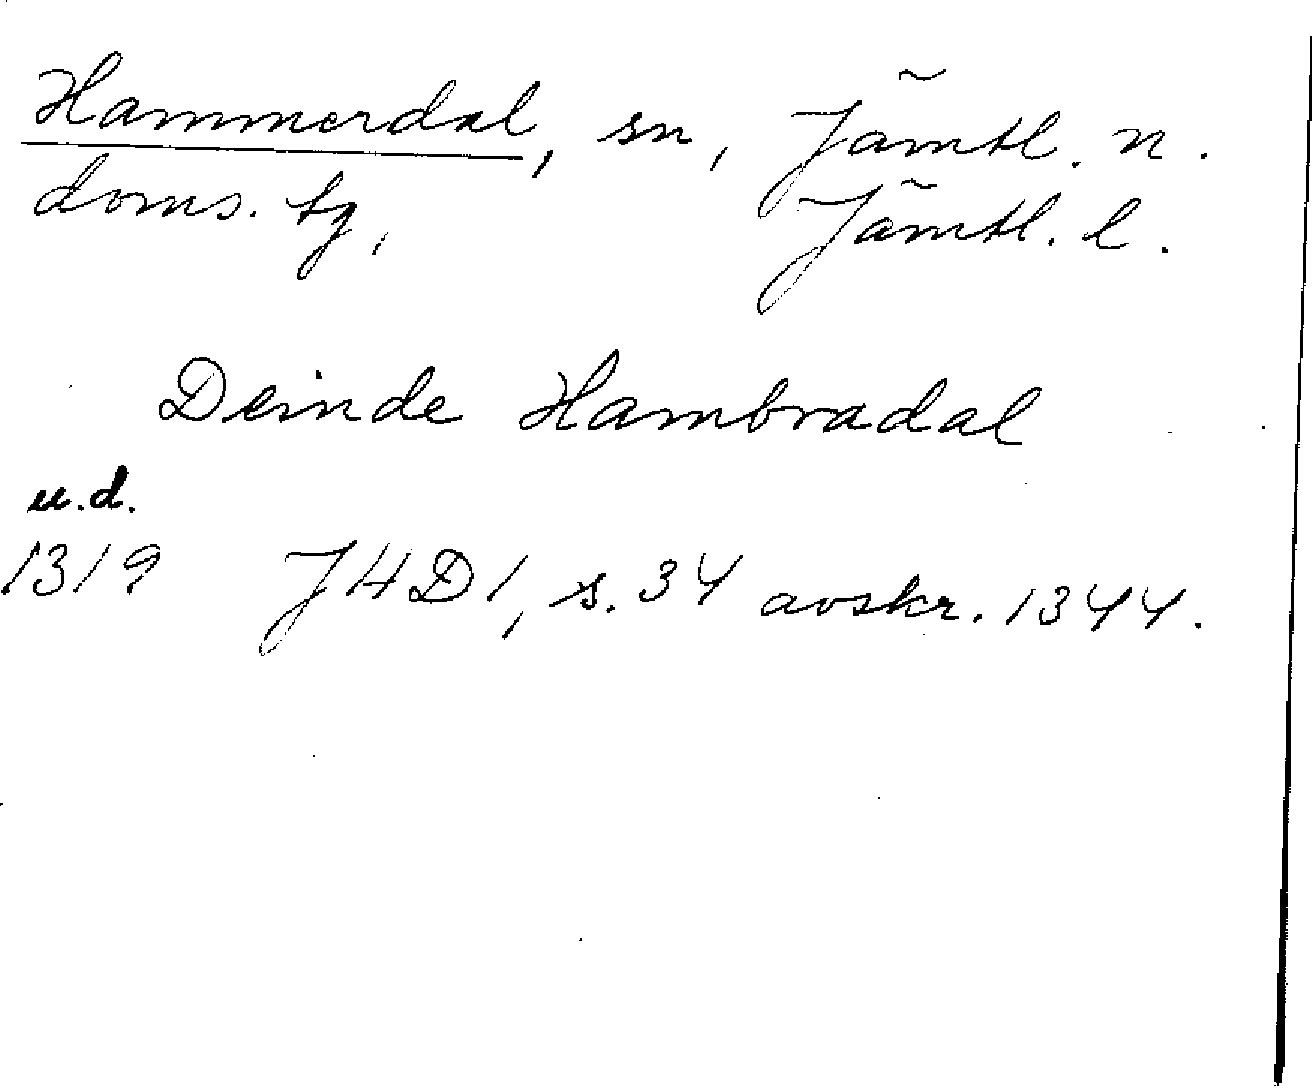 Hammerdal, sn, Jämtl. n.
doms. tg, Jämtl. l.
Deinde Hambradal
u.d.
1319 JHD1, s. 34 avskr. 1344.